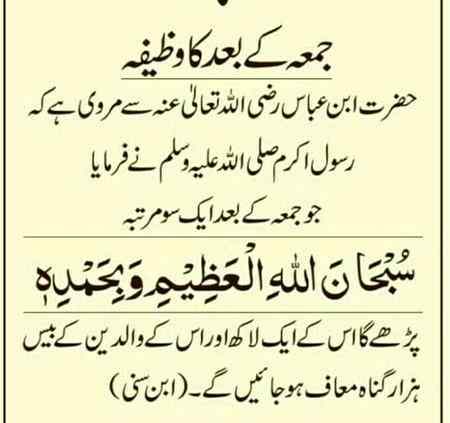 جمعہ کے بعد کا وظیفہ
حضرت ابن عباس رضی اللہ تعالیٰ عنہ سے مروی ہے کہ
رسول اکرم صلی اللہ علیہ وسلم نے فرمایا
جو جمعہ کے بعد ایک سو مرتبہ
سُبْحَانَ اللهِ الْعَظِيْمِ وَبِحَمْدِهٖ
پڑھے گا اس کے ایک لاکھ اور اس کے والدین کے بیس
ہزار گناہ معاف ہو جائیں گے۔ (ابن سنی)